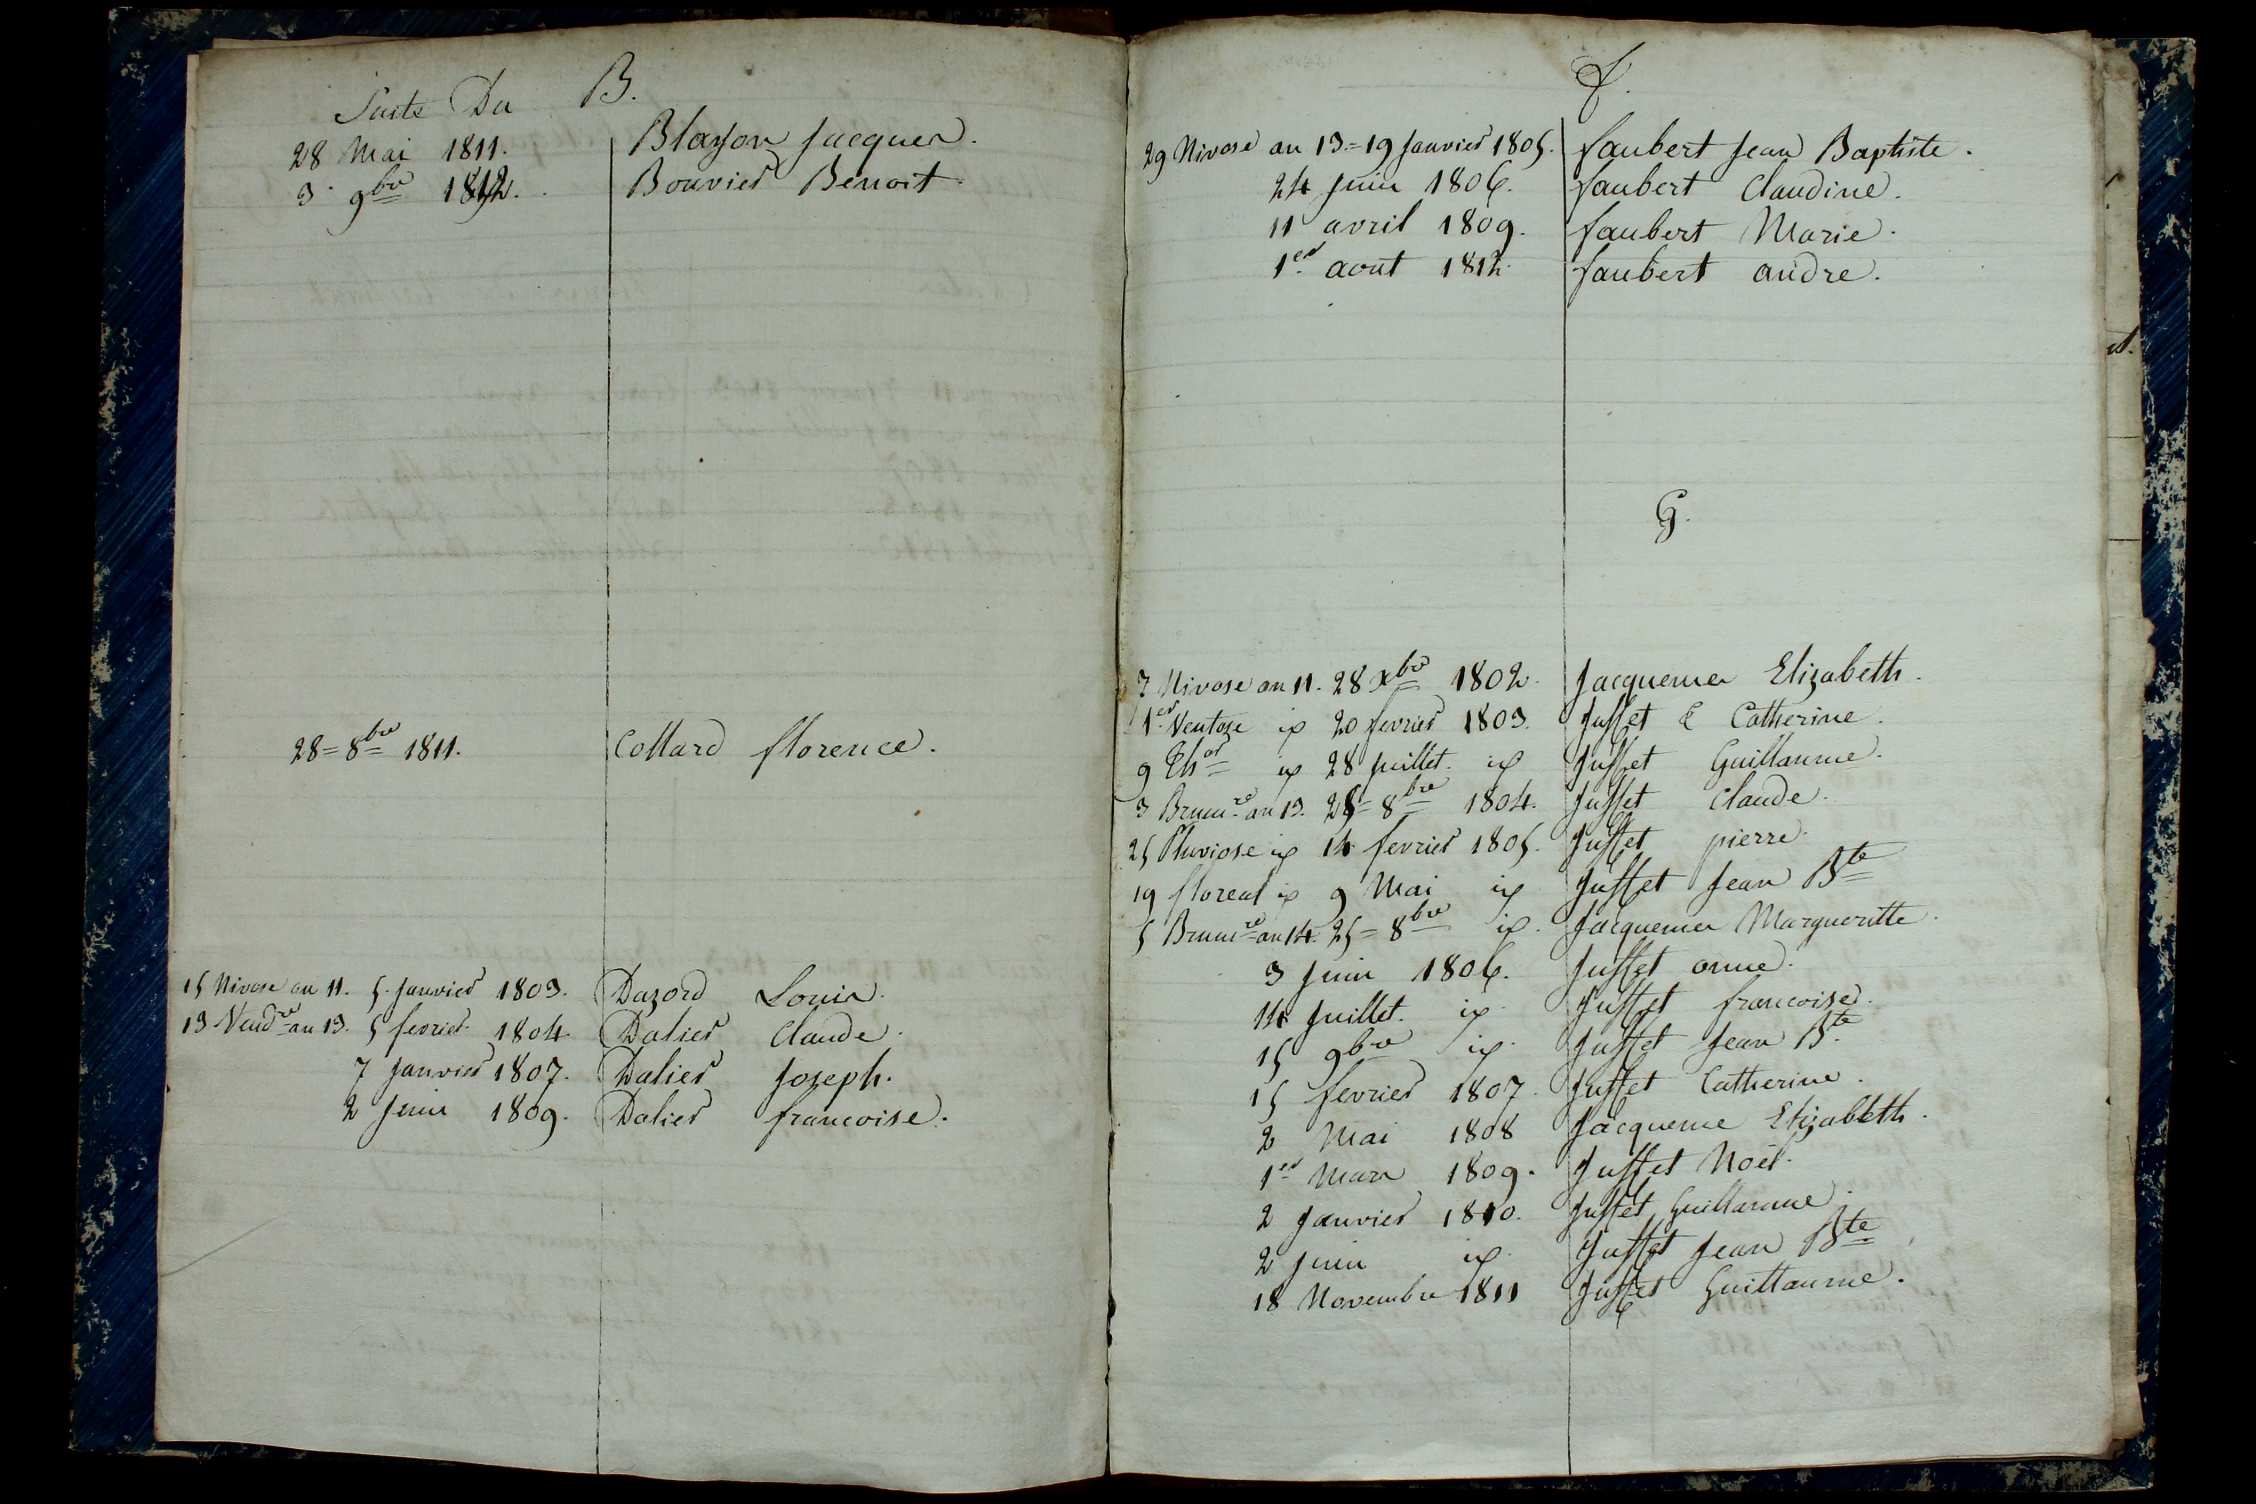 Suite Du B.
28 Mai 1811. Blazon Jacques.
3 9bre 1812. Bouvier Benoit.
28 = 8bre 1811. Collard florence.
15 Nivose an 11. 5. Janvier 1803. Dazord Louis.
13 Vendre an 13. 5 fevrier 1804 Dalier Claude.
7 Janvier 1807. Dalier Joseph.
2 Juin 1809. Dalier francoise.
f.
29 Nivose an 13 = 19 Janvier 1805. faubert Jean Baptiste.
24 Juin 1806. faubert Claudine.
11 avril 1809. faubert Marie.
1er aout 1812. faubert andre.
G.
7 Nivose an 11. 28 Xbre 1802. Jacquemes Elizabeth.
1er Ventose id 20 fevrier 1803. Juffet Catherine.
9 Thor id 28 Juillet id Juffet Guillaume.
3 Brumre an 13. 25 = 8bre 1804. Juffet Claude.
25 Pluviose id 14 fevrier 1805. Juffet pierre.
19 floreal id 9 Mai id Juffet Jean Bte
5 Brumre an 14. 25 = 8bre id. Jacquemes Margueritte.
3 Juin 1806. Juffet anne.
14 Juillet. id Juffet francoise.
15 9bre id Juffet Jean Bte
15 fevrier 1807. Juffet Catherine.
2 Mai 1808 Jacqueme Elizabeth.
1er Mars 1809. Juffet Noël.
2 Janvier 1810. Juffet Guillaume.
2 Juin id Juffet Jean Bte
18 Novembre 1811 Juffet Guillaume.